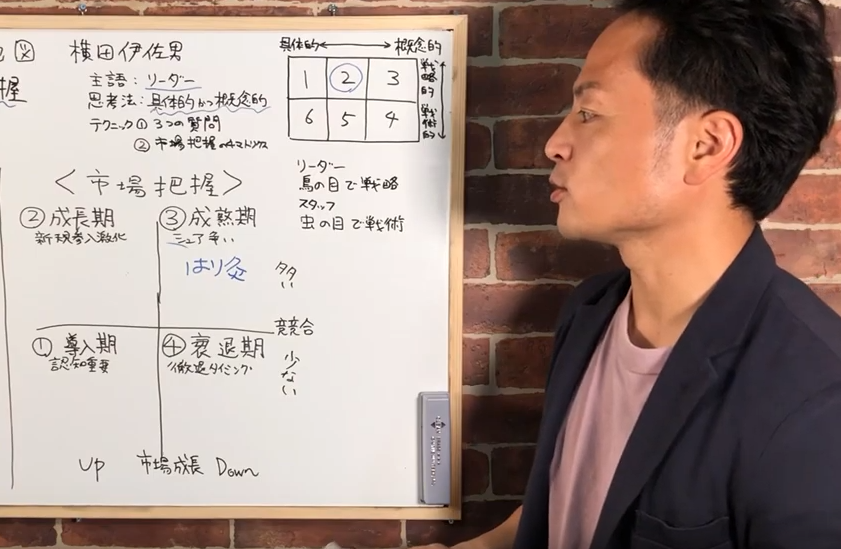 図 横田伊佐男
握
主語：リーダー
思考法：具体的かつ概念的
テクニック① 3つの質問
② 市場把握の4マトリクス
具体的 ↔ 概念的
1 2 3
戦略的
6 5 4
戦術的
リーダー
鳥の目で戦略
スタッフ
虫の目で戦術
＜市場把握＞
②成長期
新規参入激化
③成熟期
シェア争い
はり灸
多い
競合
①導入期
認知重要
④衰退期
撤退タイミング
少ない
Up 市場成長 Down